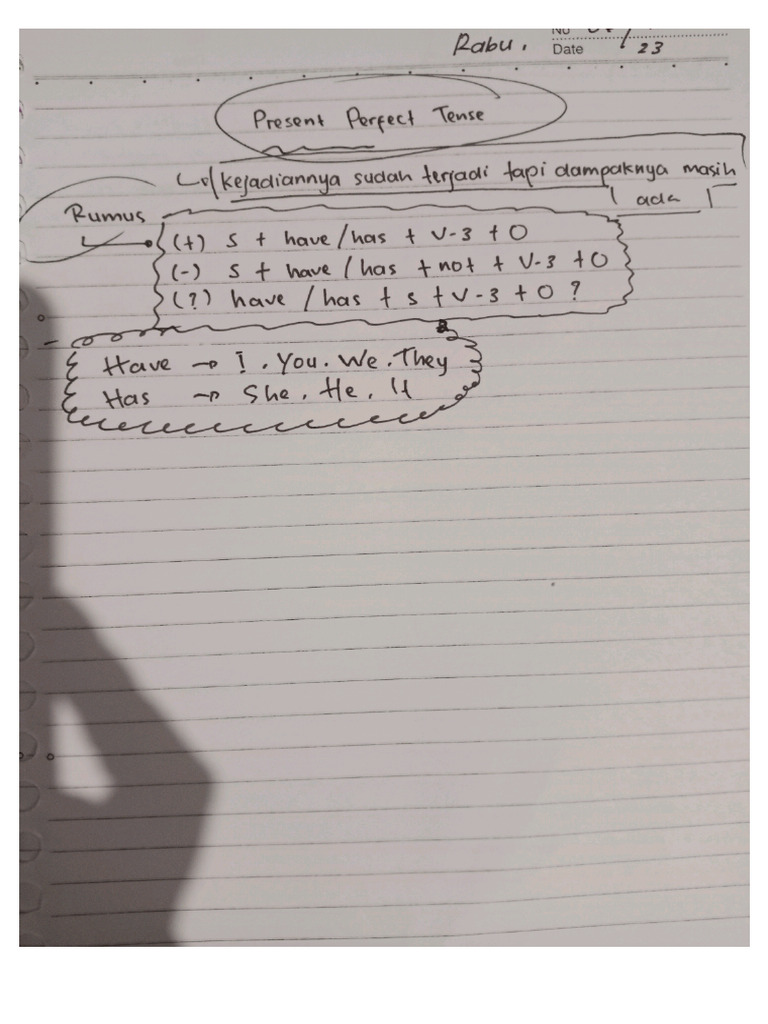 Rabu.
Date / 23
Present Perfect Tense
kejadiannya sudah terjadi tapi dampaknya masih
ada
Rumus
(+) S + have / has + V-3 + O
(-) S + have / has + not + V-3 + O
(?) have / has + s + V-3 + O ?
Have → I . You . We . They
Has → She . He . It